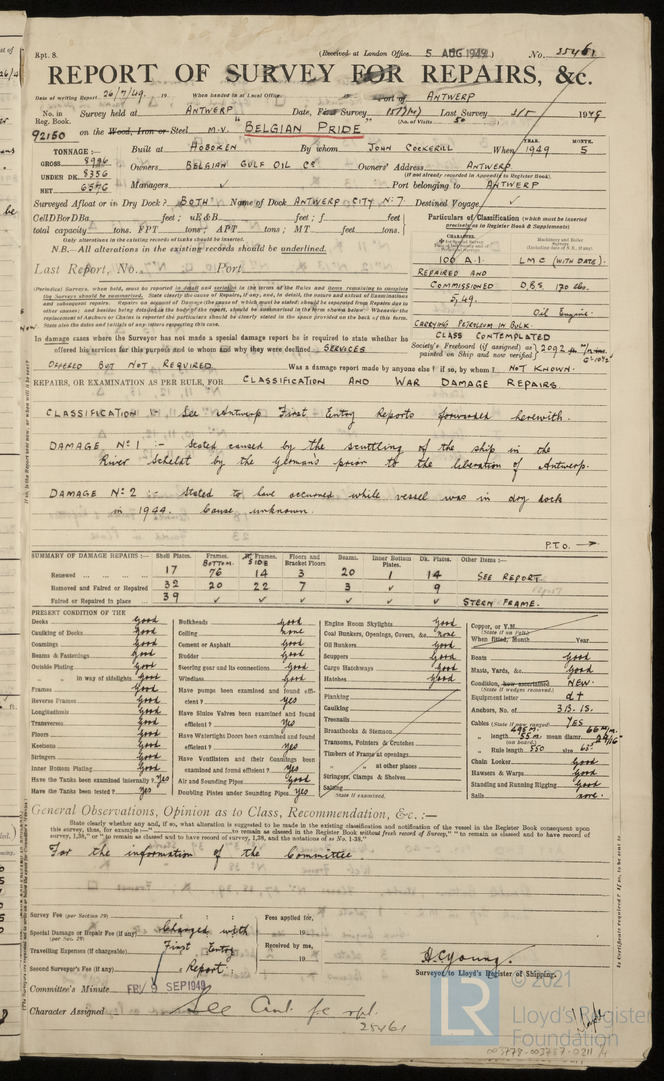 Rpt. 8.
(Received at London Office. 5 AUG 1949.) No. 25461
REPORT OF SURVEY FOR REPAIRS, &c.
Date of writing Report 26/7/49. 19 When handed in at Local Office. Port of ANTWERP
No. in Reg. Book. Survey held at ANTWERP Date, First Survey Last Survey 1949
(No. of Visits 50)
92150 on the Wood, Iron or Steel M.V. "BELGIAN PRIDE"
TONNAGE:— Built at HOBOKEN By whom JOHN COCKERILL When YEAR. 1949 MONTH. 5
GROSS 8996
UNDER DK. 8356
NET 6576
Owners BELGIAN GULF OIL Co Owners' Address ANTWERP
(If not already recorded in Appendix to Register Book)
Managers ✓ Port belonging to ANTWERP
Surveyed Afloat or in Dry Dock? BOTH Name of Dock ANTWERP CITY No. 7 Destined Voyage ✓
Cell DBor DBa feet; uE&B feet; f feet
total capacity tons. FPT tons; APT tons; MT feet tons.
Only alterations in the existing records of tanks should be inserted.
N.B.—All alterations in the existing records should be underlined.
Particulars of Classification (which must be inserted precisely as in Register Book & Supplements)
Last Report, No. Port
100 A.1. LMC (WITH DATE).
REPAIRED AND
COMMISSIONED D.B.S. 170 lbs.
5,49.
Oil Engine.
CARRYING PETROLEUM IN BULK.
CLASS CONTEMPLATED
(Periodical Surveys, when held, must be reported in detail and seriatim in the terms of the Rules and items remaining to complete the Surveys should be summarised. State clearly the cause of Repairs, if any, and, in detail, the nature and extent of Examinations and subsequent repairs.
State also the dates and initials of any letters respecting this case.
In damage cases where the Surveyor has not made a special damage report he is required to state whether he
offered his services for this purpose and to whom and why they were declined SERVICES
Society's Freeboard (if assigned) as painted on Ship and now verified 2092
OFFERED BUT NOT REQUIRED Was a damage report made by anyone else? if so, by whom? NOT KNOWN.
REPAIRS, OR EXAMINATION AS PER RULE, FOR CLASSIFICATION AND WAR DAMAGE REPAIRS.
CLASSIFICATION :- See Antwerp First Entry Reports forwarded herewith.
DAMAGE No. 1 :- Stated caused by the scuttling of the ship in the
River Scheldt by the Germans prior to the liberation of Antwerp.
DAMAGE No. 2 :- Stated to have occurred while vessel was in dry dock
in 1944. Cause unknown.
P.T.O. →
SUMMARY OF DAMAGE REPAIRS:— Shell Plates. Frames. BOTTOM. Frames. SIDE Floors and Bracket Floors Beams. Inner Bottom Plates Dk. Plates. Other Items:—
Renewed 17 76 14 3 20 1 14 SEE REPORT
Removed and Faired or Repaired 32 20 22 7 3 ✓ 9
Faired or Repaired in place 39 ✓ ✓ ✓ ✓ ✓ ✓ STERN FRAME.
PRESENT CONDITION OF THE
Decks Good
Caulking of Decks Good
Coamings Good
Beams & Fastenings Good
Outside Plating Good
" " in way of sidelights Good
Frames Good
Reverse Frames Good
Longitudinals Good
Transverses Good
Floors Good
Keelsons Good
Stringers Good
Inner Bottom Plating Good
Have the Tanks been examined internally? Yes
Have the Tanks been tested? Yes
Bulkheads Good
Ceiling None
Cement or Asphalt Good
Rudder Good
Steering gear and its connections Good
Windlass Good
Have pumps been examined and found efficient? Yes
Have Sluice Valves been examined and found efficient? Yes
Have Watertight Doors been examined and found efficient? Yes
Have Ventilators and their Coamings been examined and found efficient? Yes
Air and Sounding Pipes Good
Doubling Plates under Sounding Pipes Yes
Engine Room Skylights Good
Coal Bunkers, Openings, Covers, &c. None
Oil Bunkers Good
Scuppers Good
Cargo Hatchways Good
Hatches Good
Planking
Caulking
Treenails
Breasthooks & Stemson
Transoms, Pointers & Crutches
Timbers of Frame at openings
" " at other places
Stringers, Clamps & Shelves
Salting
State if examined.
Copper, or Y.M.
(State if on Felt.)
When fitted, Month Year
Boats Good
Masts, Yards, &c. Good
Condition, how ascertained NEW.
(State if wedges removed.)
Equipment letter d†
Anchors, No. of 3B. 1S.
Cables (State if now ranged) YES
" length 495M. mean diam. 66 m/m
(on board.)
" Rule length 550 size
Chain Locker Good
Hawsers & Warps Good
Standing and Running Rigging Good
Sails None.
General Observations, Opinion as to Class, Recommendation, &c.:—
State clearly whether any and, if so, what alteration is suggested to be made in the existing classification and notification of the vessel in the Register Book consequent upon
For the information of the Committee.
Survey Fee (per Section 29) : : Fees applied for,
Special Damage or Repair Fee (if any) (per Sec. 29) Charged with 19
Travelling Expenses (if chargeable) First Entry Received by me,
Second Surveyor's Fee (if any) Report. 19
A.C. Young.
Surveyor to Lloyd's Register of Shipping.
Committee's Minute FRI 9 SEP 1949
Character Assigned See Ant. f.e. rpt.
25461
© 2021
LR
Lloyd's Register
Foundation
003778-003787-0211